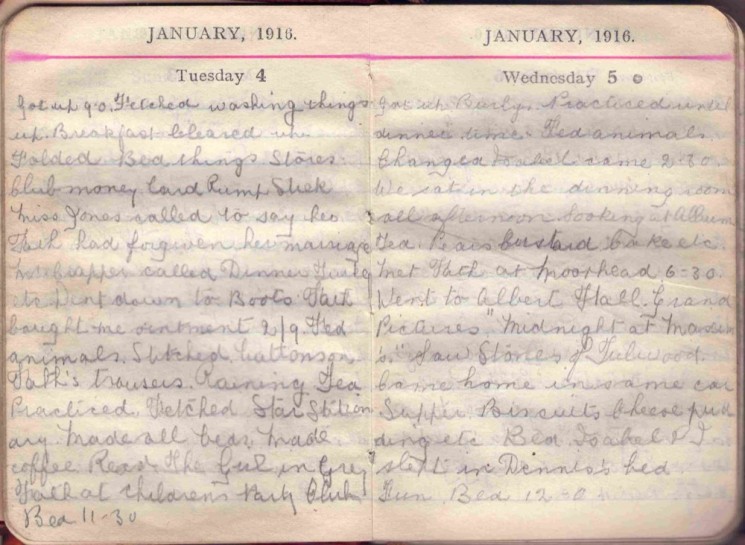 JANUARY, 1916.
Tuesday 4
Got up 9.0. Fetched washing things
up. Breakfast Cleared up
Folded Bed things Stores
Club money Card Rump Steak
Miss Jones called to say her
Fath had forgiven her marriage
called Dinner
etc Went down to Boots Fath
bought me ointment 2/9. Fed
animals. Stitched buttons on
Fath's trousers. Raining Tea
Practiced. Fetched Star Station
ary. Made all beds. Made
coffee Read The Girl in Grey
Fath at Children's Party Club
Bed 11-30
JANUARY, 1916.
Wednesday 5
Got up Early. Practiced until
dinner time. Fed animals.
Changed Isabel came 2-30.
We sat in the dinning room
all afternoon looking at Album
Tea Pears custard cake etc.
Met Fath at Moorhead 6-30.
Went to Albert Hall. Grand
Pictures "Midnight at Maxim
s." Saw Stones of Fulwood.
Came home in same car
Supper Biscuits Cheese pud
ding etc Bed Isabel & I
slept in Dennis's bed
Fun. Bed 12-0